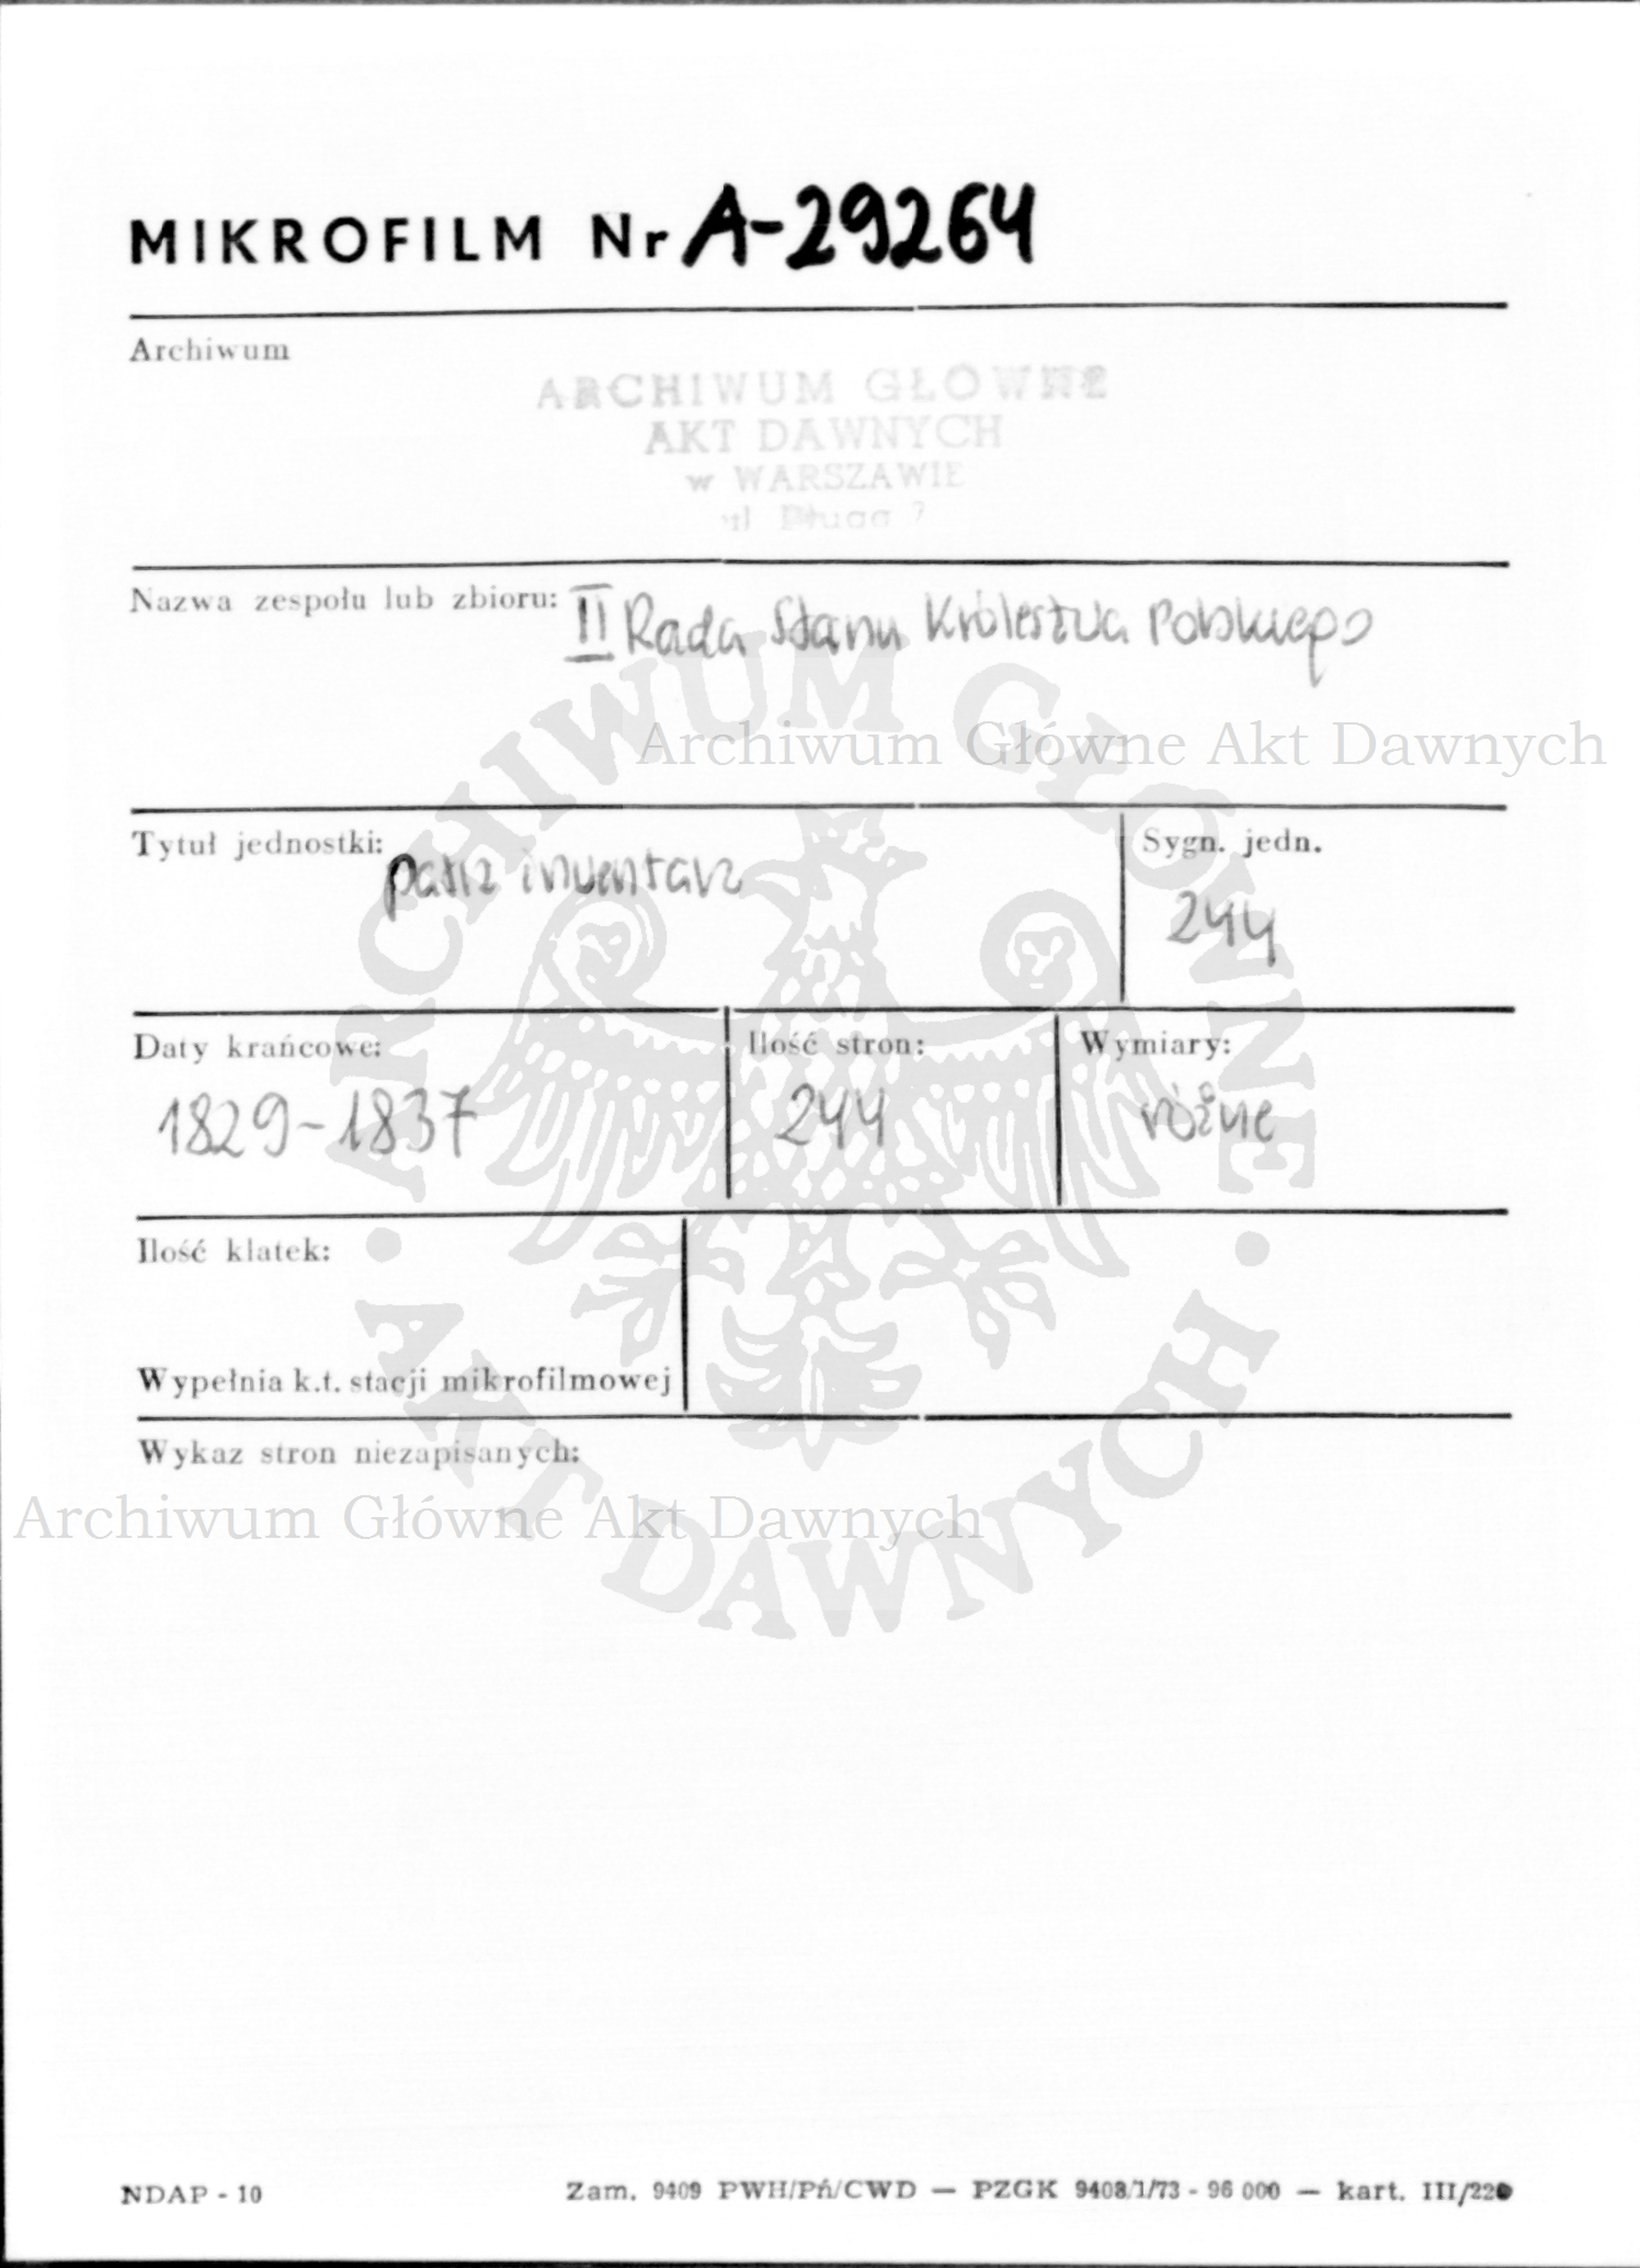 MIKROFILM Nr A-29264
Archiwum
ARCHIWUM GŁÓWNE
AKT DAWNYCH
w WARSZAWIE
ul Długa 7
Nazwa zespołu lub zbioru: II Rada Stanu Królestwa Polskiego
Archiwum Główne Akt Dawnych
Tytuł jednostki: patrz inwentarz
Sygn. jedn.
244
Daty krańcowe:
1829-1837
Ilość stron:
244
Wymiary:
różne
Ilość klatek:
Wypełnia k.t. stacji mikrofilmowej
Wykaz stron niezapisanych:
Archiwum Główne Akt Dawnych
ARCHIWUM GŁÓWNE • AKT DAWNYCH •
NDAP - 10
Zam. 9409 PWH/Pń/CWD — PZGK 9408/1/73 - 96 000 — kart. III/220